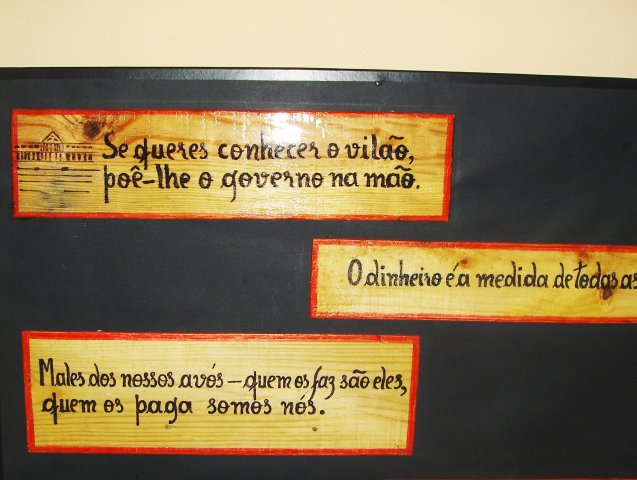 Se queres conhecer o vilão,
poê-lhe o governo na mão.
O dinheiro é a medida de todas as
Males dos nossos avós – quem os faz são eles,
quem os paga somos nós.